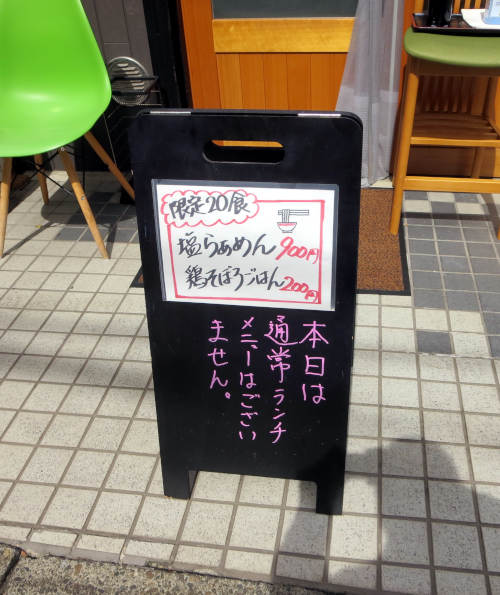 限定20食
塩らぁめん 900円
鶏そぼろごはん 200円
本日は
通常ランチ
メニューはござい
ません。